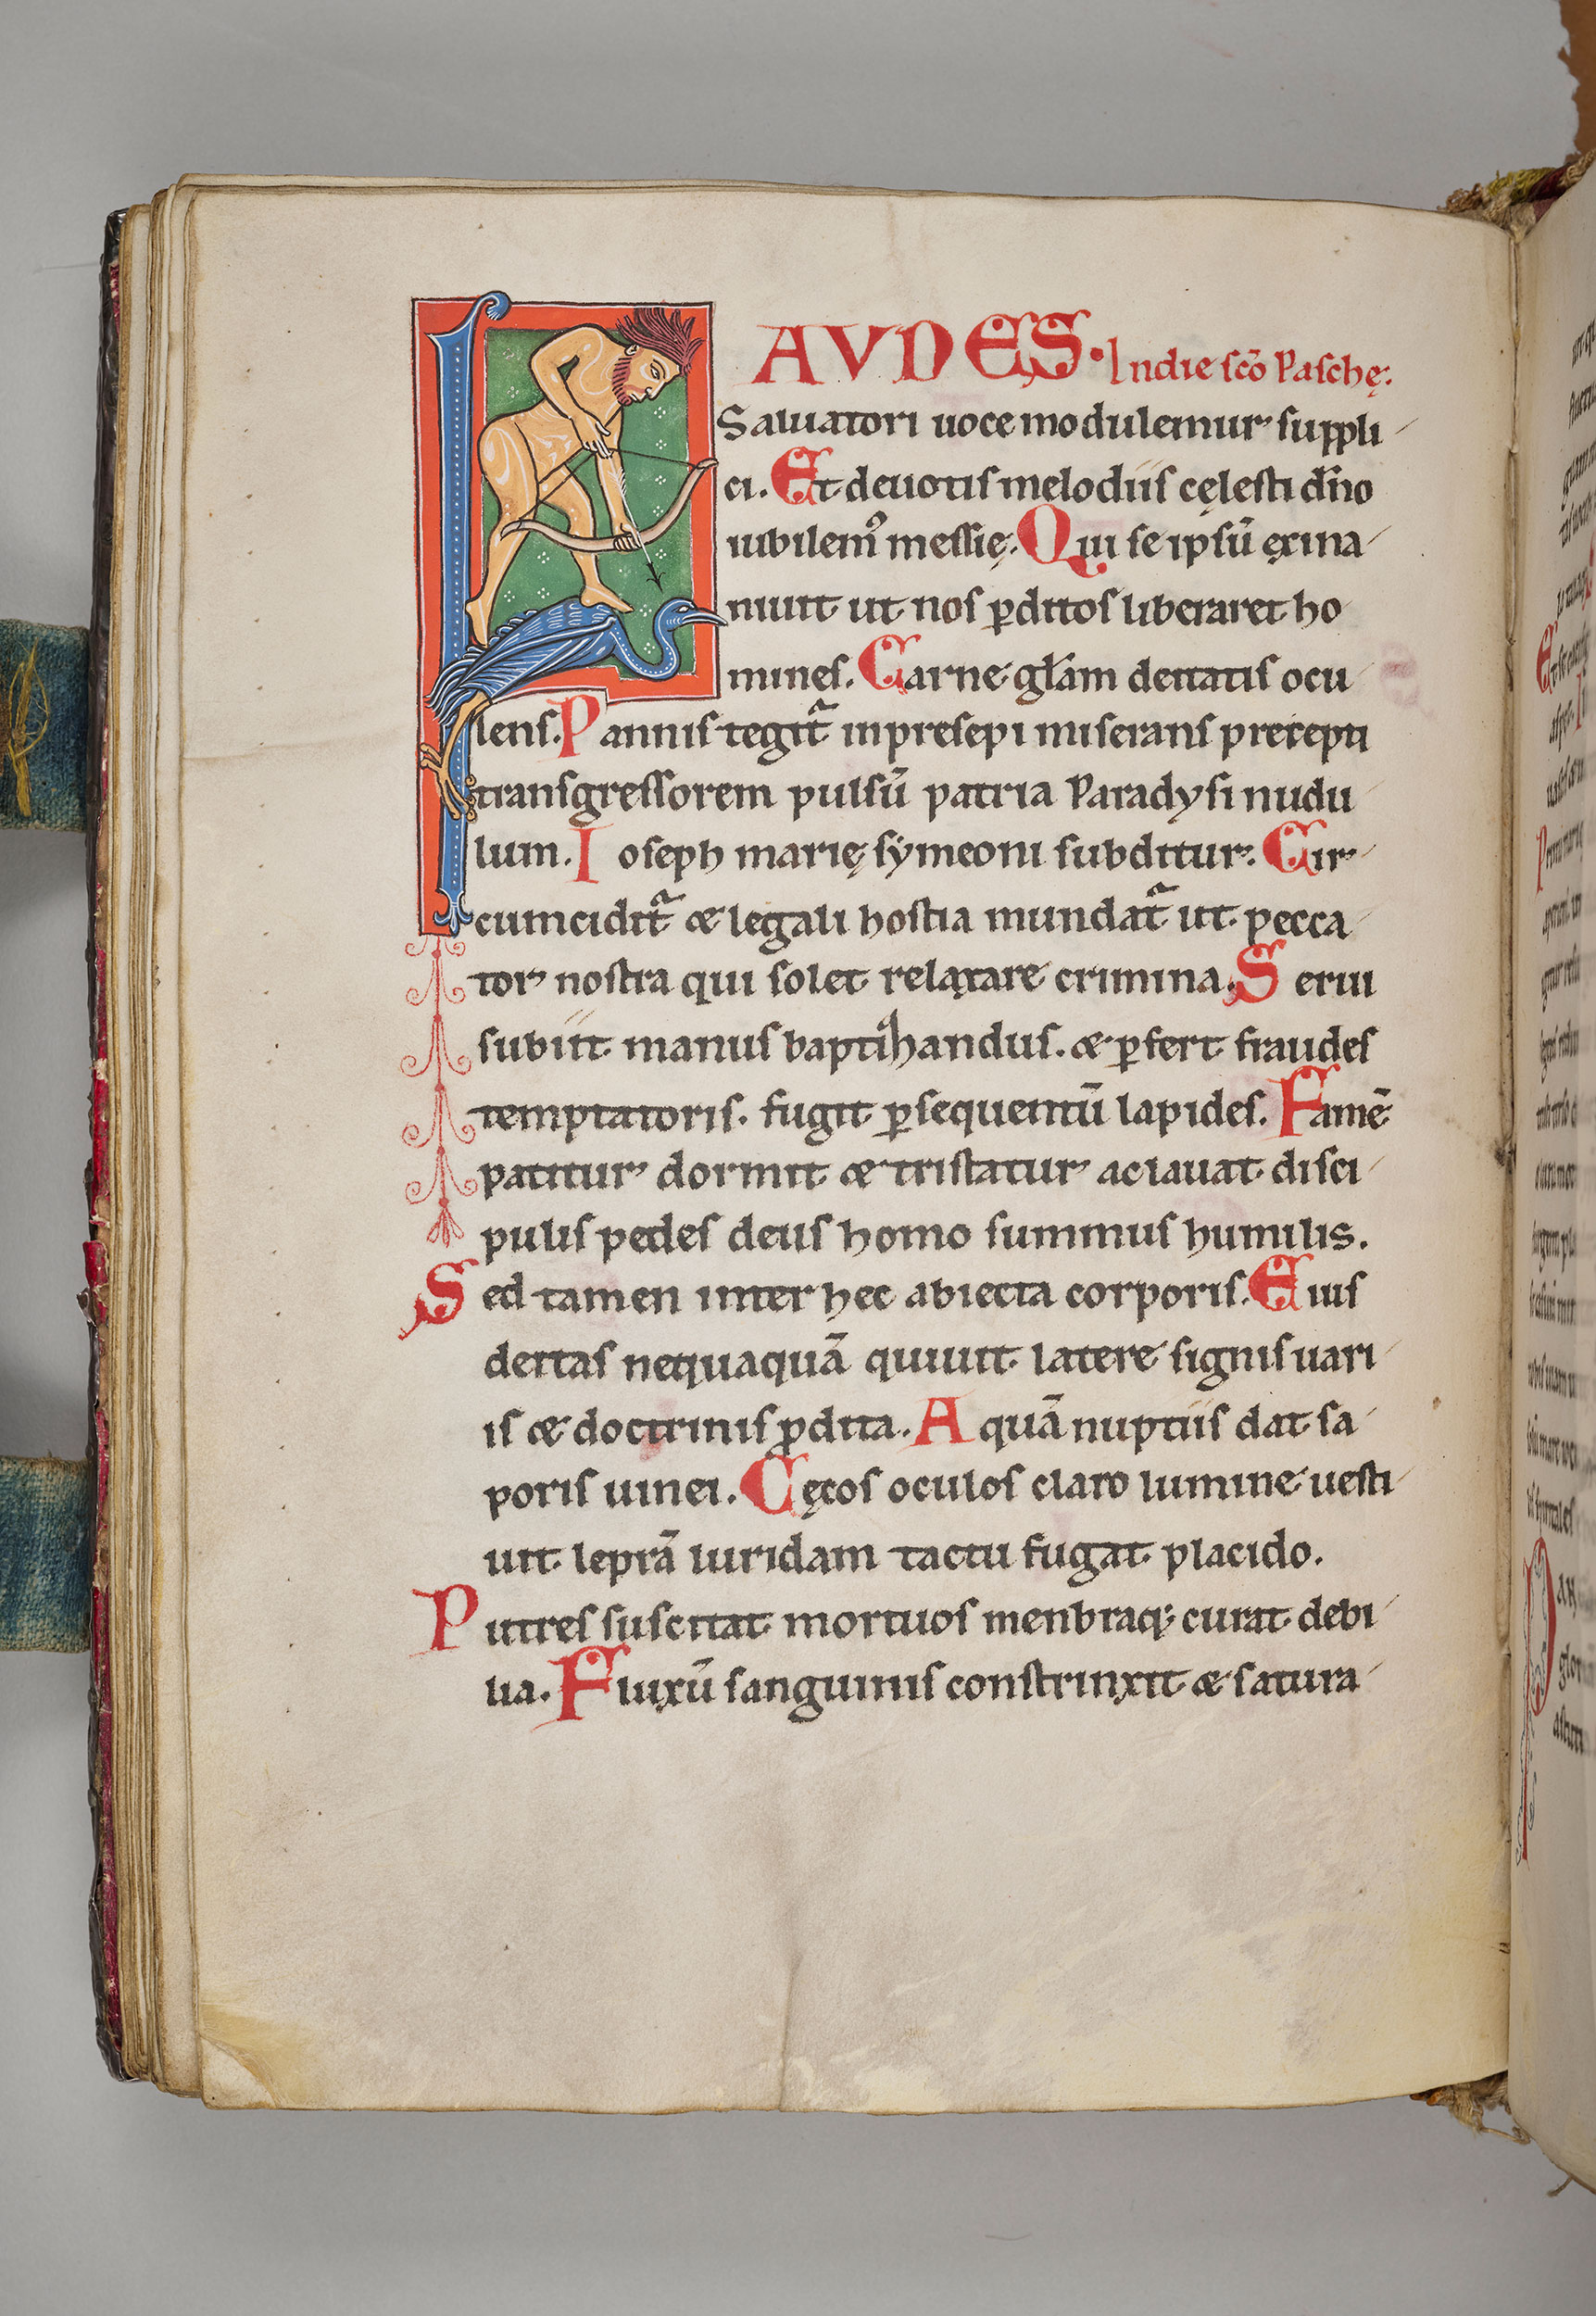 LAVDES. In die sc̄o Paschę:
Saluatori uoce modulemur suppli
ci. Et deuotis melodiis cęlesti dn̄o
iubilem᷒ messię. Qui se ipsū exina
niuit ut nos ꝑditos liberaret ho
mines. Carne gl̄am deitatis ocu
lens. Pannis tegit᷑ in presepi miserans precepti
transgressorem pulsū patria Paradysi nudu
lum. Ioseph marię symeoni subditur. Cir
cumcidit᷑ & legali hostia mundat᷑ ut pecca
tor nostra qui solet relaxare crimina. Serui
subiit manus baptizandus. & ꝑfert fraudes
temptatoris. fugit ꝑsequentū lapides. Famē
patitur dormit & tristatur ac lauat disci
pulis pedes deus homo summus humilis.
Sed tamen inter hec abiecta corporis. Eius
deitas nequaquā quiuit latere signis uari
is & doctrinis ꝓdita. A quā nuptiis dat sa
poris uinei. Cęcos oculos claro lumine uesti
uit leprā luridam tactu fugat placido.
Putres suscitat mortuos menbraq; curat debi
lia. Fluxū sanguinis constrinxit & satura